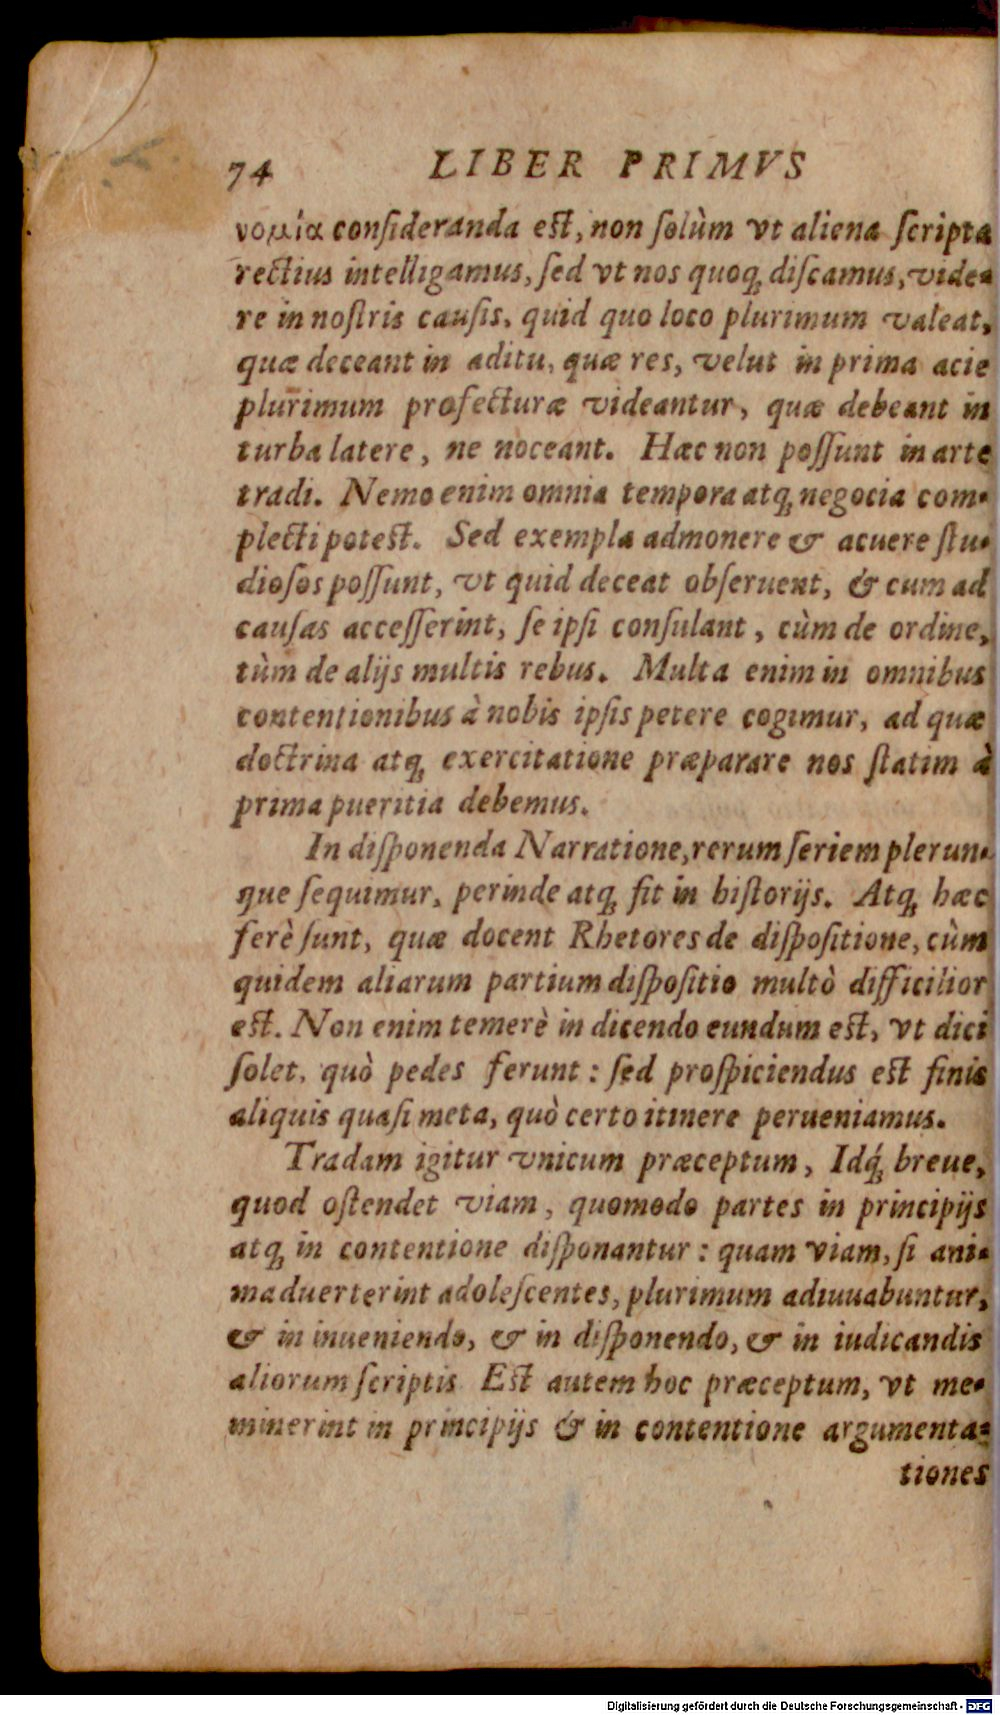 74 LIBER PRIMVS
νομία conſideranda eſt, non ſolùm vt aliena ſcripta
rectius intelligamus, ſed vt nos quoq́; diſcamus, vide-
re in noſtris cauſis, quid quo loco plurimum valeat,
quæ deceant in aditu, quæ res, velut in prima acie
plurimum profecturæ videantur, quæ debeant in
turba latere, ne noceant. Hæc non poſſunt in arte
tradi. Nemo enim omnia tempora atq; negocia com-
plecti poteſt. Sed exempla admonere & acuere ſtu-
dioſos poſſunt, vt quid deceat obſeruent, & cum ad
cauſas acceſſerint, ſe ipſi conſulant, cùm de ordine,
tùm de alijs multis rebus. Multa enim in omnibus
contentionibus à nobis ipſis petere cogimur, ad quæ
doctrina atq; exercitatione præparare nos ſtatim à
prima pueritia debemus.
In diſponenda Narratione, rerum ſeriem plerun-
que ſequimur, perinde atq; fit in hiſtorijs. Atq; hæc
ferè ſunt, quæ docent Rhetores de diſpoſitione, cùm
quidem aliarum partium diſpoſitio multò difficilior
eſt. Non enim temerè in dicendo eundum eſt, vt dici
ſolet, quò pedes ferunt: ſed proſpiciendus eſt finis
aliquis quaſi meta, quò certo itinere perueniamus.
Tradam igitur vnicum præceptum, Idq́; breue,
quod oſtendet viam, quomodo partes in principijs
atq; in contentione diſponantur: quam viam, ſi ani-
maduerterint adoleſcentes, plurimum adiuuabuntur,
& in inueniendo, & in diſponendo, & in iudicandis
aliorum ſcriptis Eſt autem hoc præceptum, vt me-
minerint in principijs & in contentione argumenta-
tiones
Digitalisierung gefördert durch die Deutsche Forschungsgemeinschaft - DFG